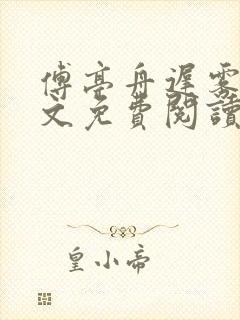 傅亭舟遲霧
文免費閱讀
皇小帝